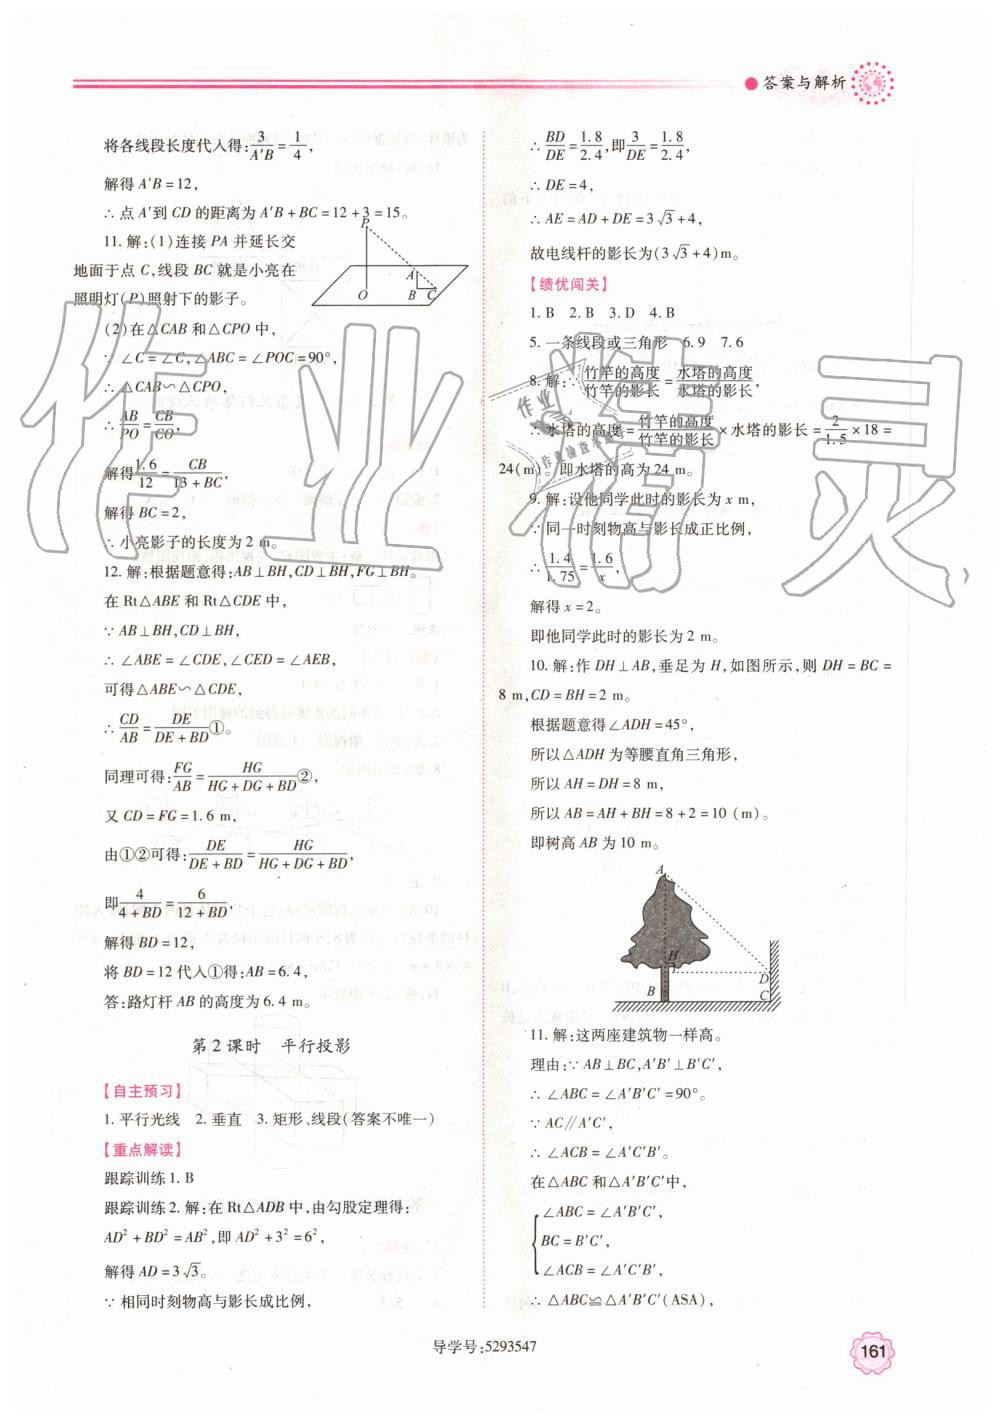 答案与解析
将各线段长度代入得:3/A′B=1/4,
解得 A′B=12,
∴点 A′到 CD 的距离为 A′B+BC=12+3=15。
11.解:(1)连接 PA 并延长交
地面于点 C,线段 BC 就是小亮在
照明灯(P)照射下的影子。
P
A
O B C
(2)在△CAB 和△CPO 中,
∵∠C=∠C,∠ABC=∠POC=90°,
∴△CAB∽△CPO,
∴AB/PO=CB/CO,
解得1.6/12=CB/(13+BC),
解得 BC=2,
∴小亮影子的长度为 2 m。
12.解:根据题意得:AB⊥BH,CD⊥BH,FG⊥BH。
在 Rt△ABE 和 Rt△CDE 中,
∵AB⊥BH,CD⊥BH,
∴∠ABE=∠CDE,∠CED=∠AEB,
可得△ABE∽△CDE,
∴CD/AB=DE/(DE+BD)①。
同理可得:FG/AB=HG/(HG+DG+BD)②,
又 CD=FG=1.6 m,
由①②可得:DE/(DE+BD)=HG/(HG+DG+BD),
即4/(4+BD)=6/(12+BD),
解得 BD=12,
将 BD=12 代入①得:AB=6.4,
答:路灯杆 AB 的高度为 6.4 m。
第 2 课时 平行投影
【自主预习】
1.平行光线 2.垂直 3.矩形、线段(答案不唯一)
【重点解读】
跟踪训练 1.B
跟踪训练 2.解:在 Rt△ADB 中,由勾股定理得:
AD²+BD²=AB²,即 AD²+3²=6²,
解得 AD=3√3。
∵相同时刻物高与影长成比例,
∴BD/DE=1.8/2.4,即3/DE=1.8/2.4,
∴DE=4,
∴AE=AD+DE=3√3+4,
故电线杆的影长为(3√3+4)m。
【绩优闯关】
1.B 2.B 3.D 4.B
5.一条线段或三角形 6.9 7.6
8.解:∵竹竿的高度/竹竿的影长=水塔的高度/水塔的影长,
∴水塔的高度=竹竿的高度/竹竿的影长×水塔的影长=2/1.5×18=
24(m)。即水塔的高为 24 m。
9.解:设他同学此时的影长为 x m,
∵同一时刻物高与影长成正比例,
∴1.4/1.75=1.6/x,
解得 x=2。
即他同学此时的影长为 2 m。
10.解:作 DH⊥AB,垂足为 H,如图所示,则 DH=BC=
8 m,CD=BH=2 m。
根据题意得∠ADH=45°,
所以△ADH 为等腰直角三角形,
所以 AH=DH=8 m,
所以 AB=AH+BH=8+2=10 (m)。
即树高 AB 为 10 m。
A
H
D
B C
11.解:这两座建筑物一样高。
理由:∵AB⊥BC,A′B′⊥B′C′,
∴∠ABC=∠A′B′C′=90°。
∵AC∥A′C′,
∴∠ACB=∠A′C′B′。
在△ABC 和△A′B′C′中,
∠ABC=∠A′B′C′,
BC=B′C′,
∠ACB=∠A′C′B′,
∴△ABC≌△A′B′C′(ASA),
导学号:5293547
161
作业精灵